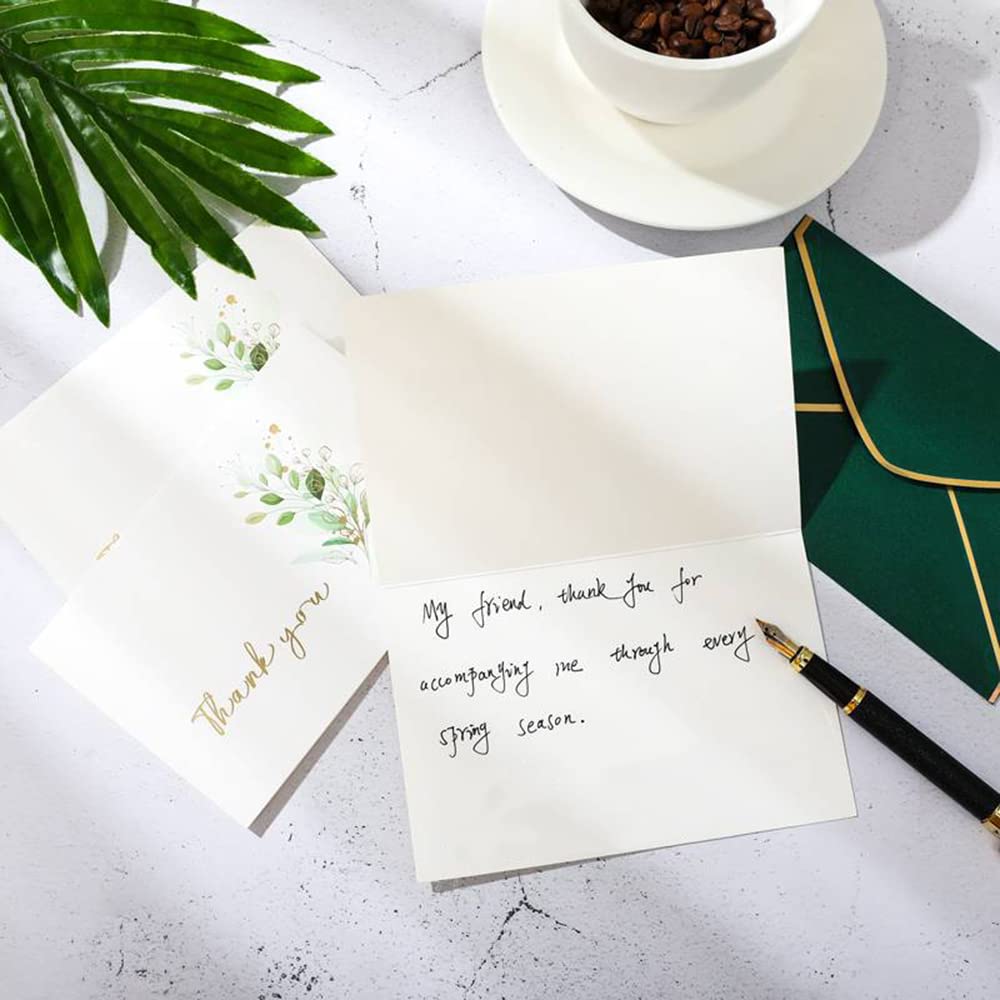 Thank you
My friend, thank you for
accompanying me through every
spring season.